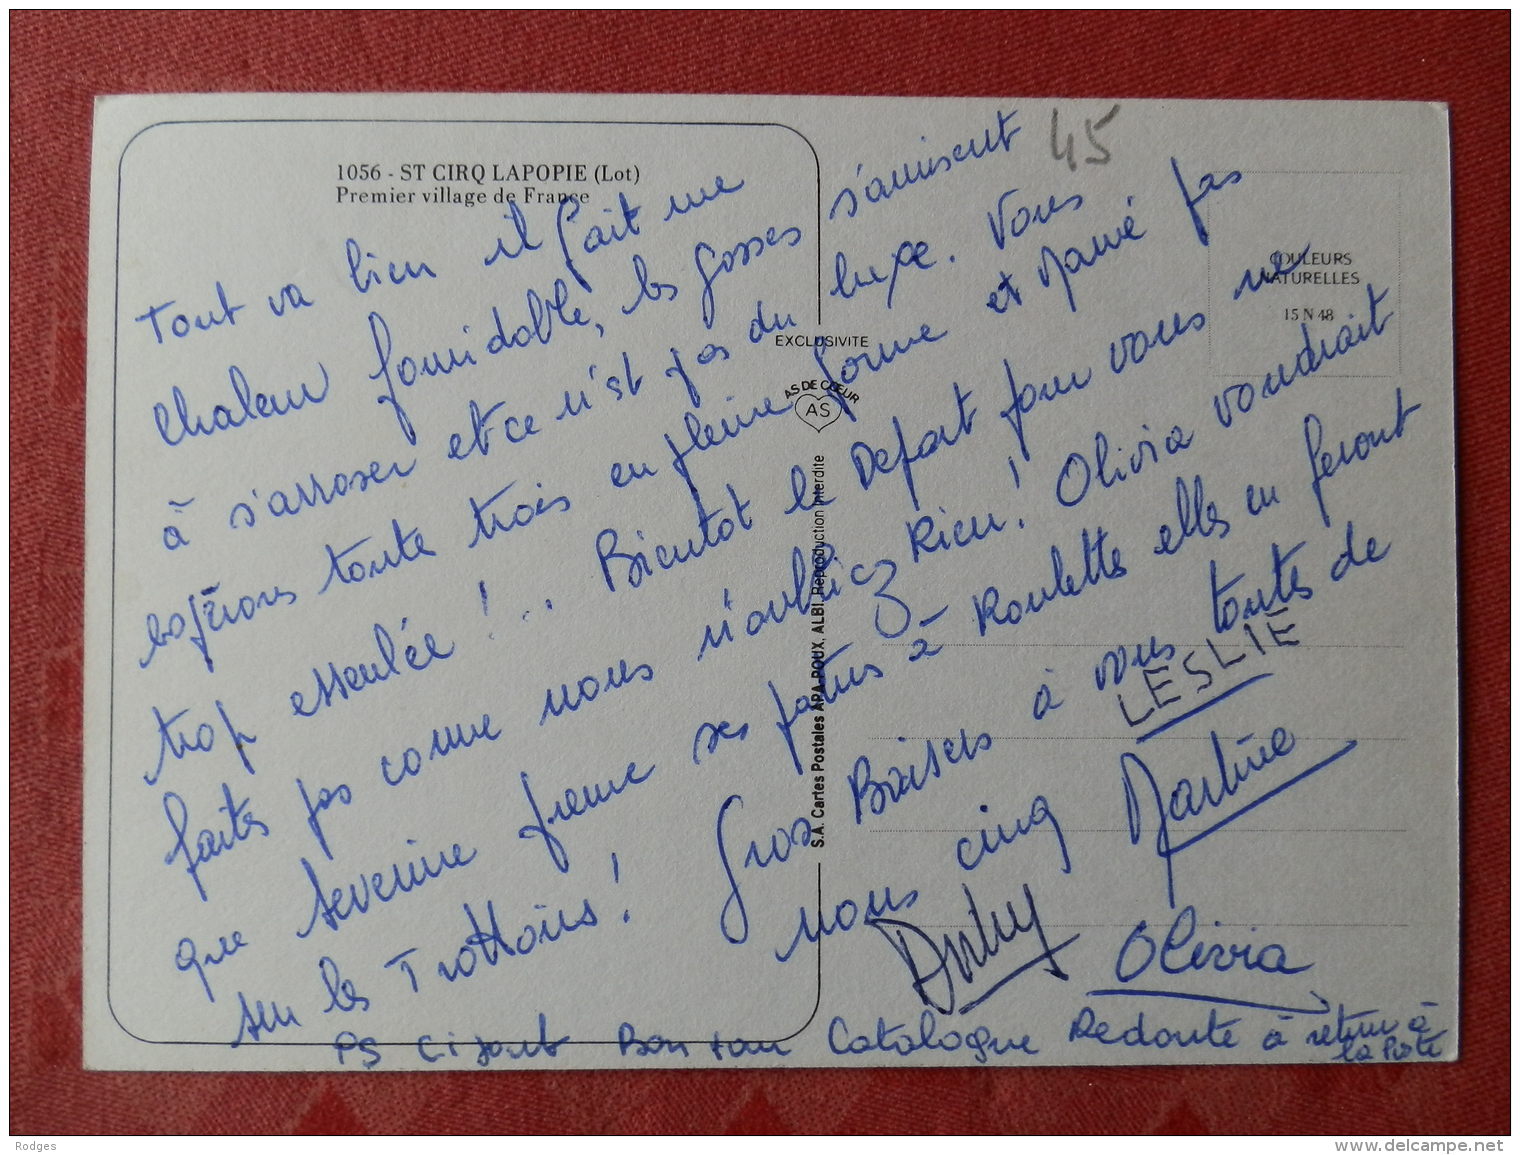 1056 - ST CIRQ LAPOPIE (Lot)
Premier village de France
45
COULEURS
NATURELLES
15 N 48
EXCLUSIVITE
AS DE CŒUR
AS
S.A. Cartes Postales APA-POUX, ALBI. Reproduction Interdite
Tout va bien il fait une
chaleur formidable, les gosses s'amusent
à s'arroser et ce n'est pas du luxe. Vous
espérons toute trois en pleine forme et Mamé pas
trop essoulée !.. Bientôt le Depart pour vous ne
faites pas comme nous n'oubliez Rien ! Olivia voudrait
que severine prenne ses patins à Roulettes elles en feront
sur les Trottoirs ! Gros Baisers à vous toutes de
nous cinq
LESLIE
Martine
Olivia
PS Ci joint Bon pour Catalogue Redoute à retirer à
la Poste
Rodges
www.delcampe.net